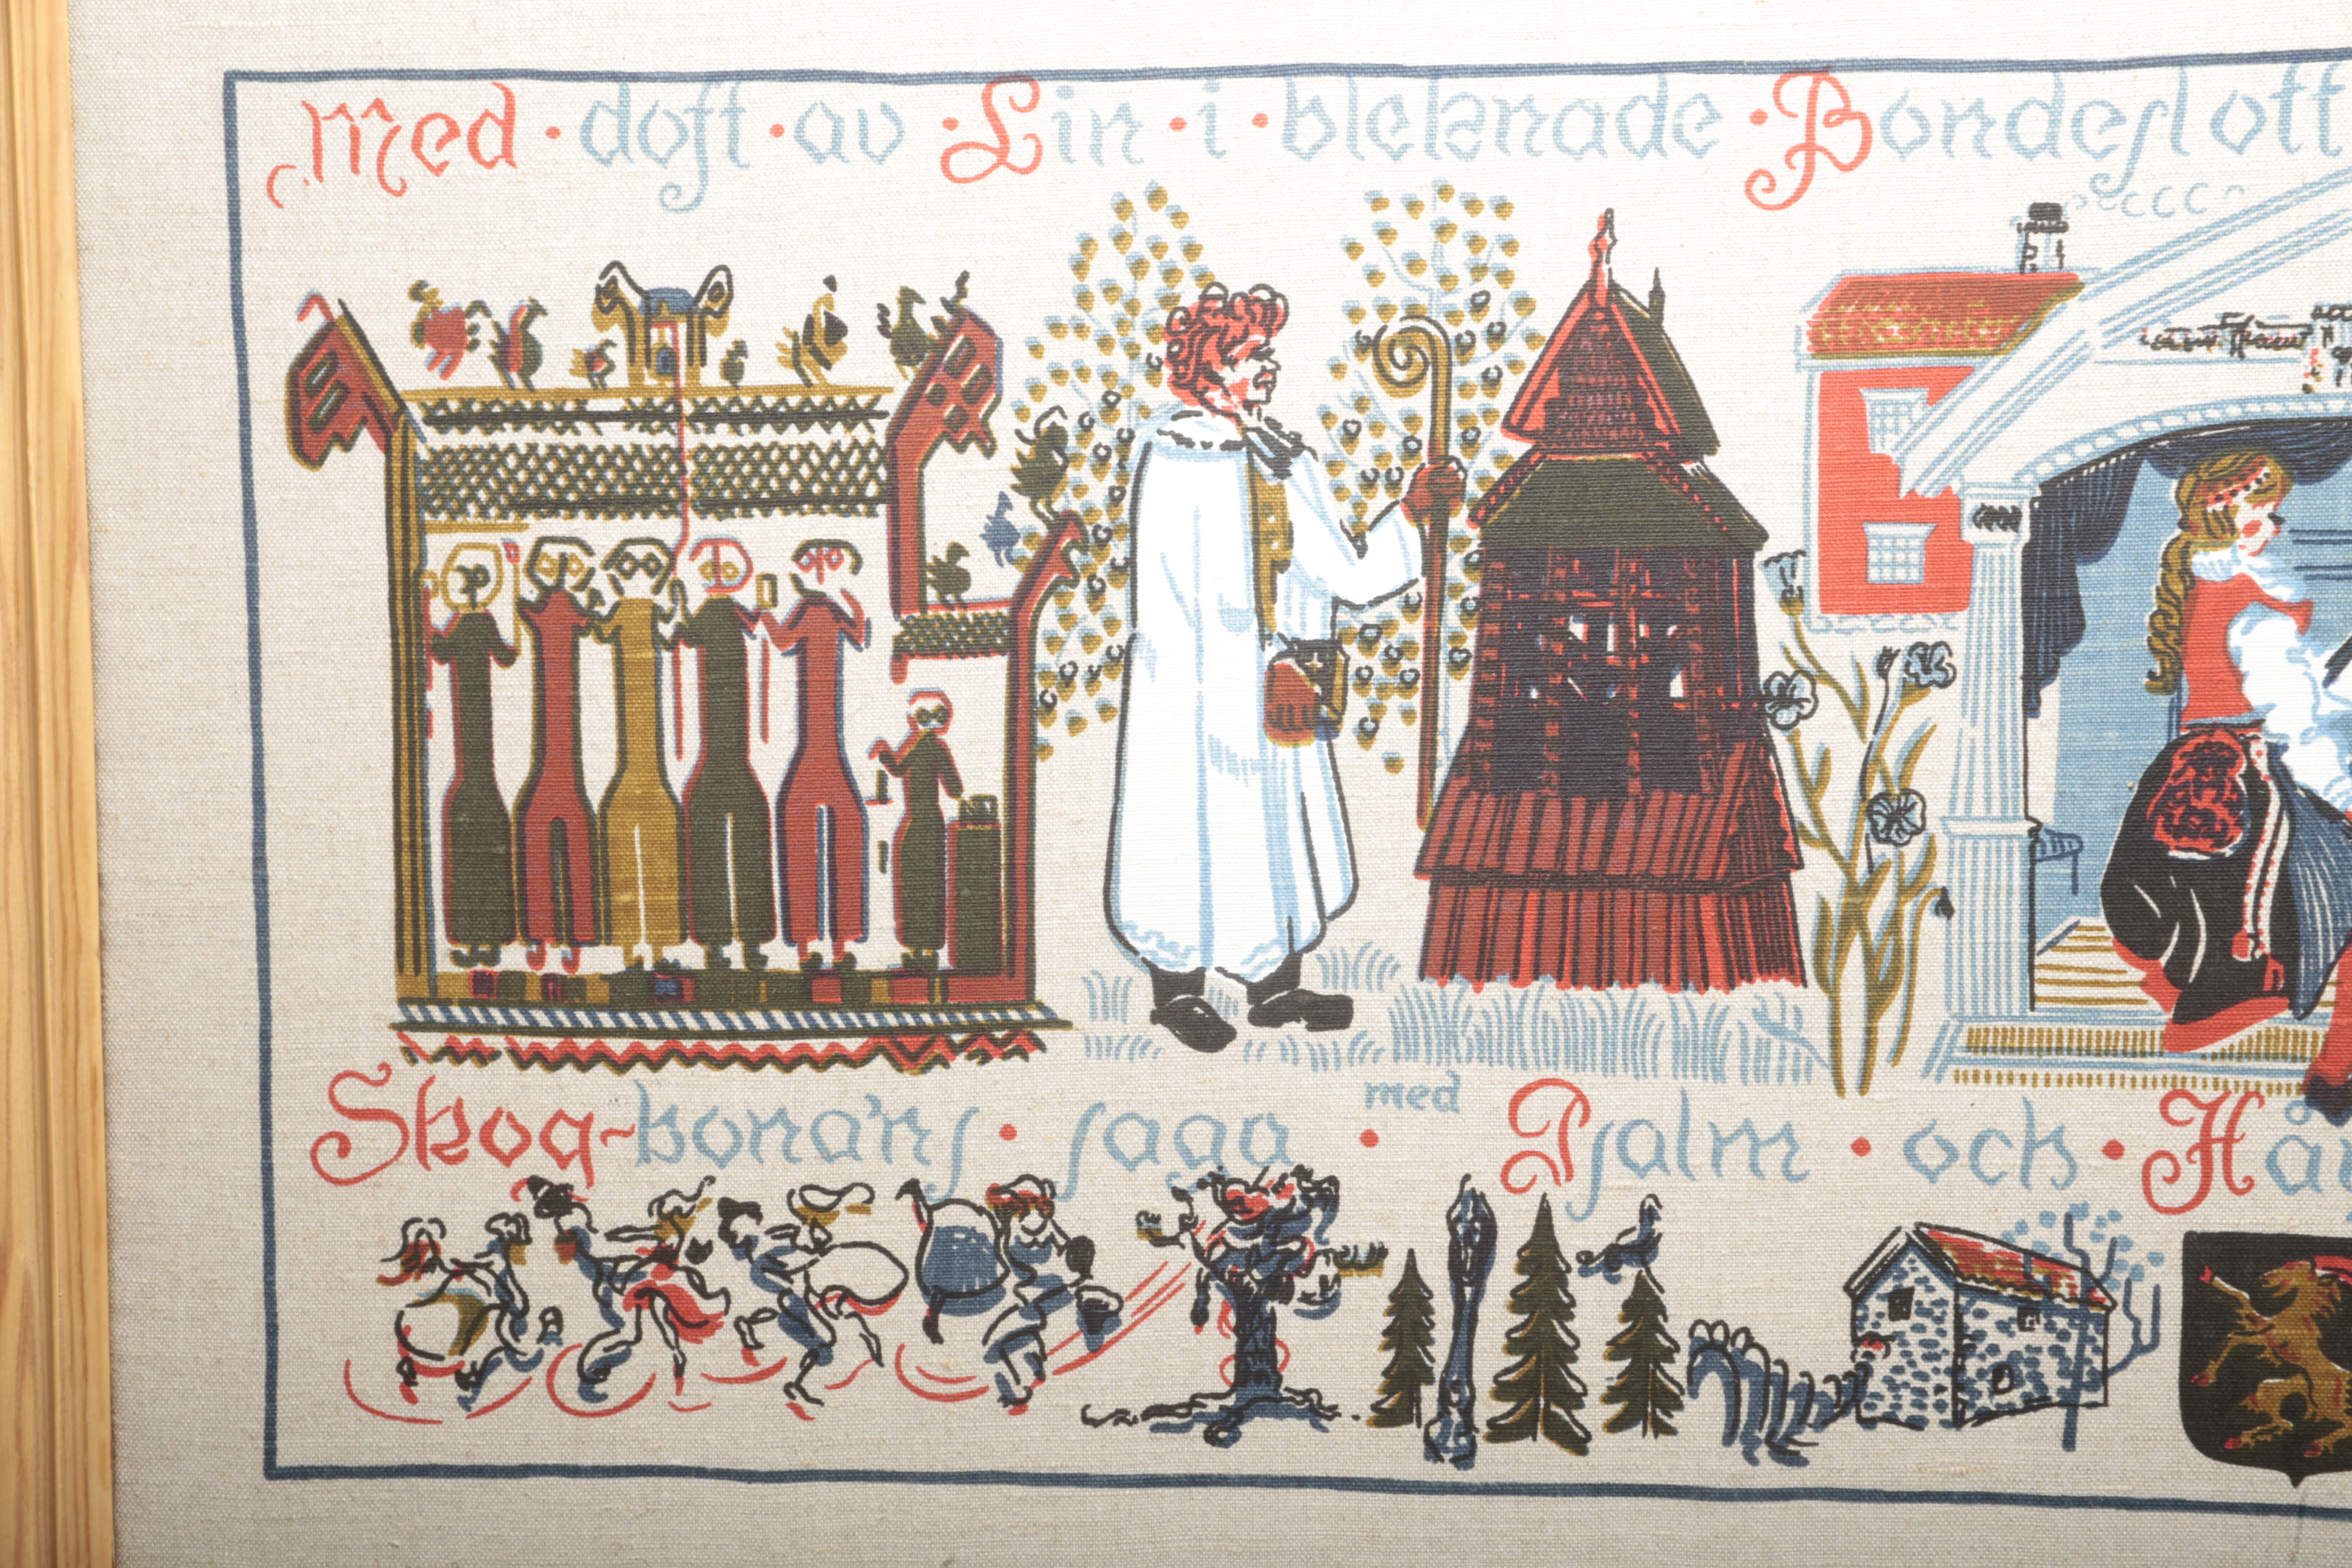 Med · doft · av · Lin · i · bleknade · Bondeslott
Skog-kona'ns · saga · med Psalm · och · Hå